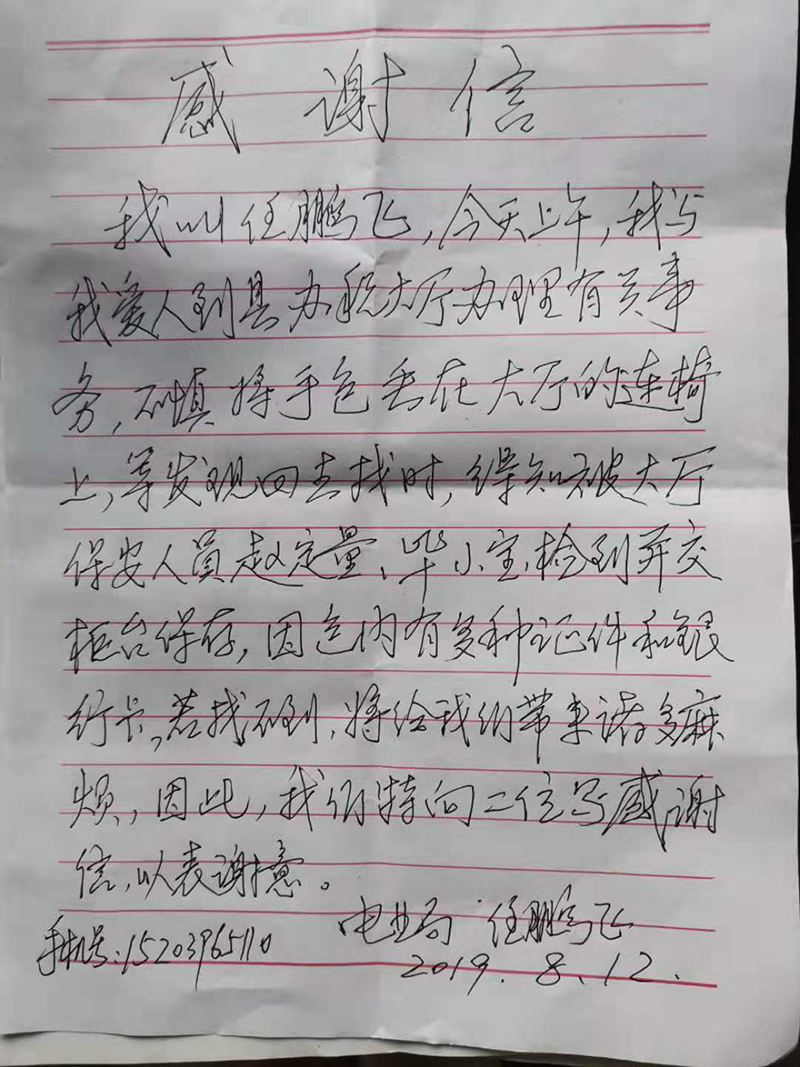 感谢信
我叫任鹏飞,今天上午,我与
我爱人到县办税大厅办理有关事
务,不慎将手包丢在大厅的连椅
上,等发现回去找时,得知被大厅
保安人员赵定量、毕小宝捡到并交
柜台保存,因包内有多种证件和银
行卡,若找不到,将给我们带来诸多麻
烦,因此,我们特向二位写感谢
信,以表谢意。
电业局 任鹏飞
手机号:15203965110
2019.8.12.